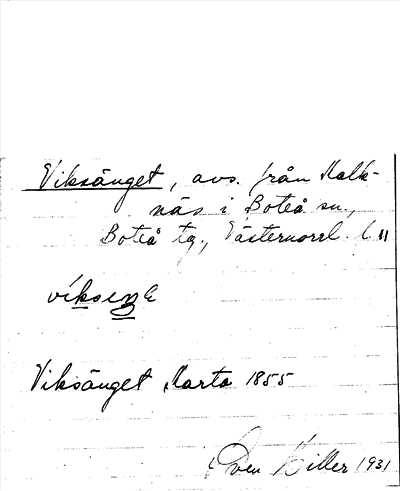 Viksänget, avs. från Malk-
näs i Boteå sn.,
Boteå tg., Västernorrl. l.
Viksänget Karta 1855
Sven Hiller 1931